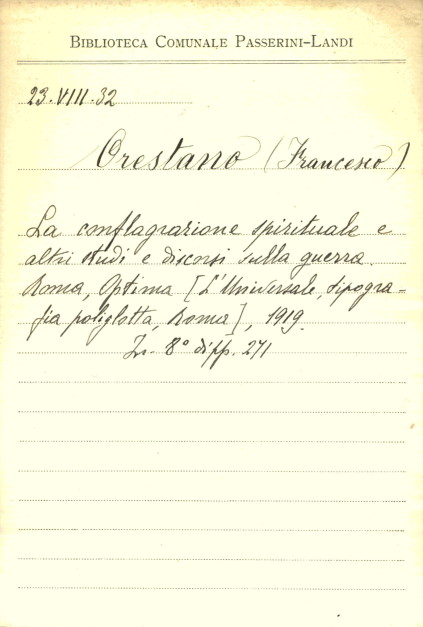 BIBLIOTECA COMUNALE PASSERINI-LANDI
23.VIII.32
Orestano (Francesco)
La conflagrazione spirituale e
altri studi e discorsi sulla guerra.
Roma, Optima [L'Universale, tipogra-
fia poliglotta, Roma], 1919.
In 8° di pp. 271